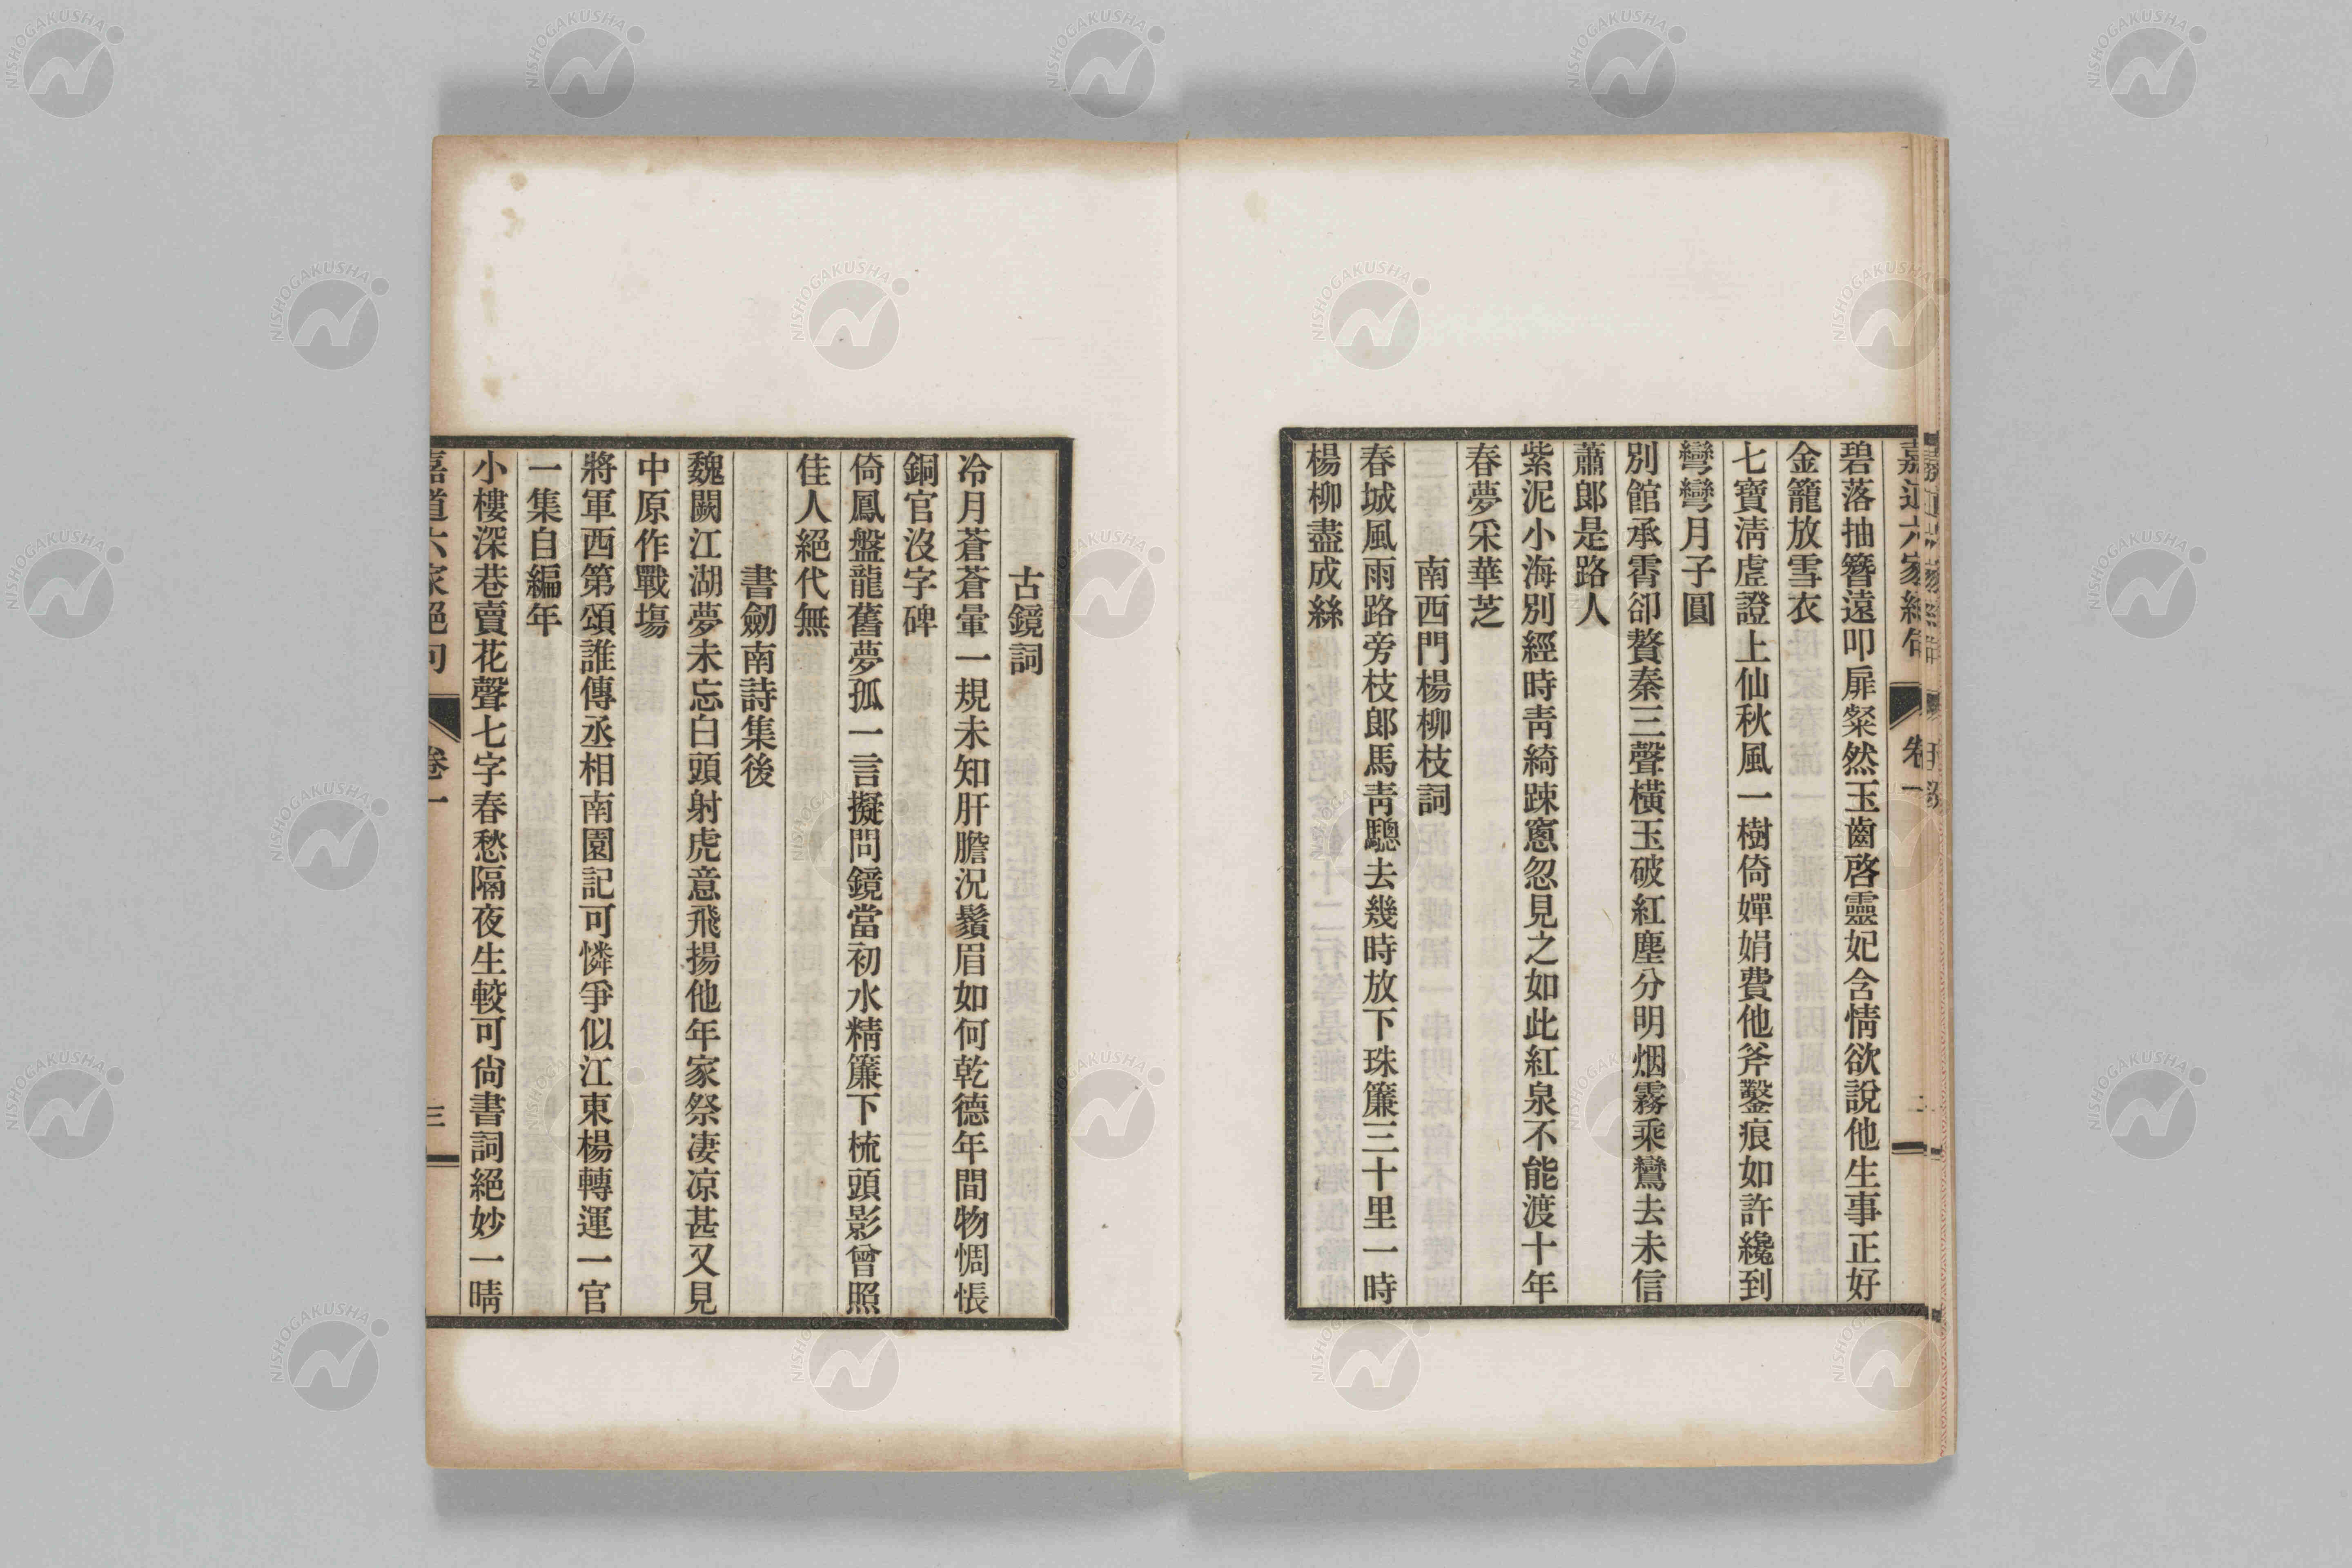 嘉道六家絕句
卷一
二
碧落抽簪遠叩扉粲然玉齒啓靈妃含情欲說他生事正好
金籠放雪衣
七寶淸虛證上仙秋風一樹倚嬋娟費他斧鑿痕如許纔到
彎彎月子圓
別館承霄卻贅秦三聲橫玉破紅塵分明烟霧乘鸞去未信
蕭郎是路人
紫泥小海別經時靑綺踈窻忽見之如此紅泉不能渡十年
春夢采華芝
南西門楊柳枝詞
春城風雨路旁枝郞馬靑驄去幾時放下珠簾三十里一時
楊柳盡成絲
古鏡詞
冷月蒼蒼暈一規未知肝膽況鬚眉如何乾德年間物惆悵
銅官沒字碑
倚鳳盤龍舊夢孤一言擬問鏡當初水精簾下梳頭影曾照
佳人絕代無
書劒南詩集後
魏闕江湖夢未忘白頭射虎意飛揚他年家祭凄凉甚又見
中原作戰塲
將軍西第頌誰傳丞相南園記可憐爭似江東楊轉運一官
一集自編年
小樓深巷賣花聲七字春愁隔夜生較可尙書詞絕妙一晴
嘉道六家絕句
卷一
三
NISHOGAKUSHA